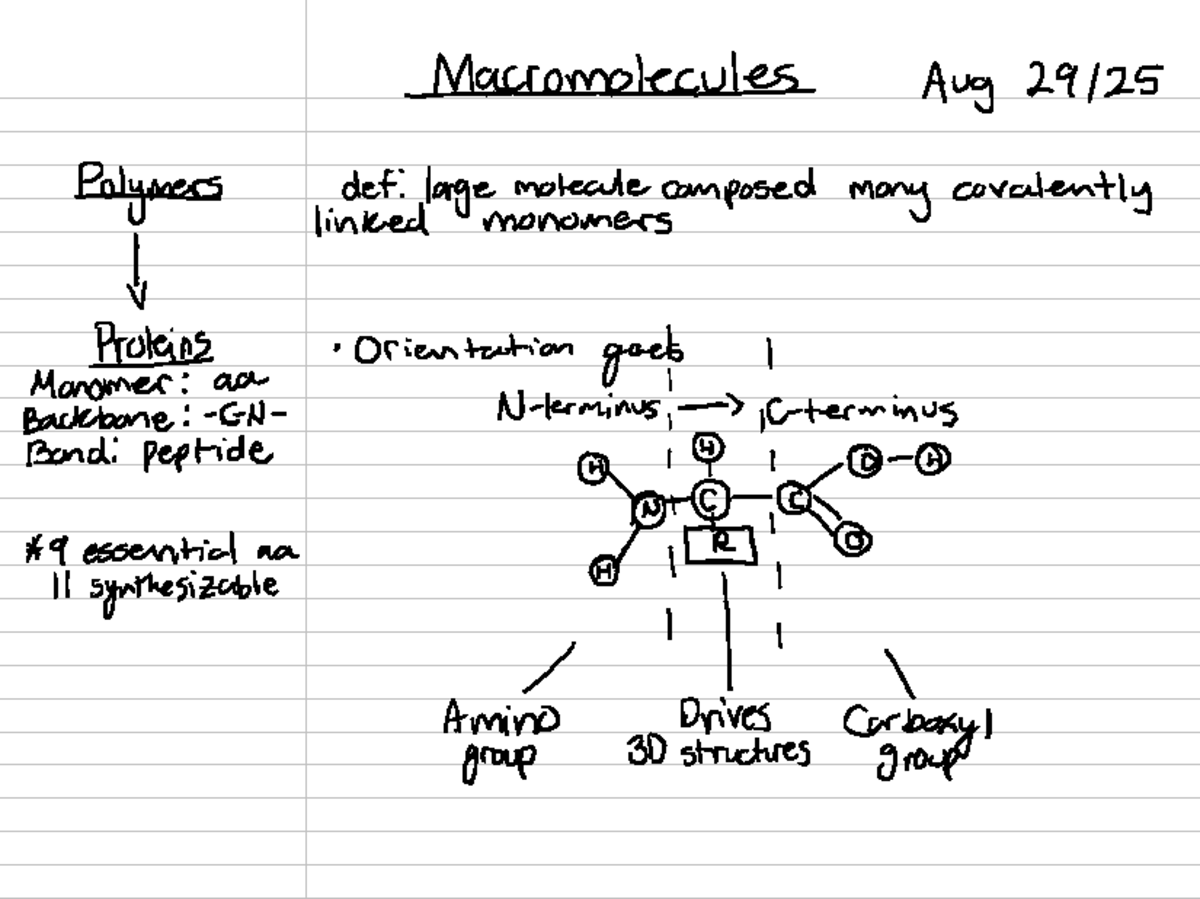 Macromolecules
Aug 29/25
Polymers
def: large molecule composed many covalently
linked monomers
Proteins
Monomer: aa
Backbone: -CN-
Bond: peptide
*9 essential aa
11 synthesizable
· Orientation goes
N-terminus → C-terminus
H
H
O-H
N
C
C
R
O
H
Amino
group
Drives
3D structures
Carboxyl
group